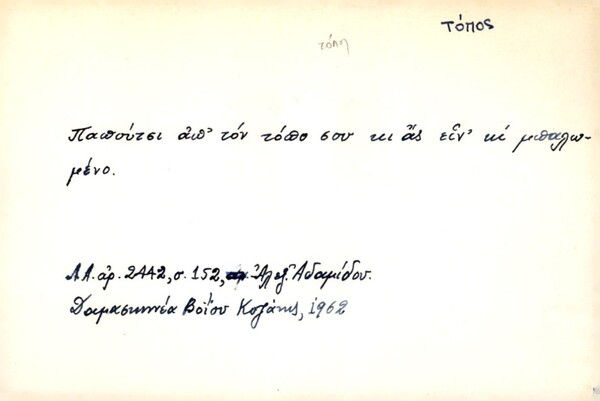 ΤΌΠΟΣ
τόπη
Παπούτσι ἀπ' τόν τόπο σου κι ἄς εἶν' κί μπαλω-
μένο.
Λ.Α. ἀρ. 2442, σ. 152, Ἀλεξ. Ἀδαμίδου.
Δαμασκηνέα Βοΐου Κοζάνης, 1962